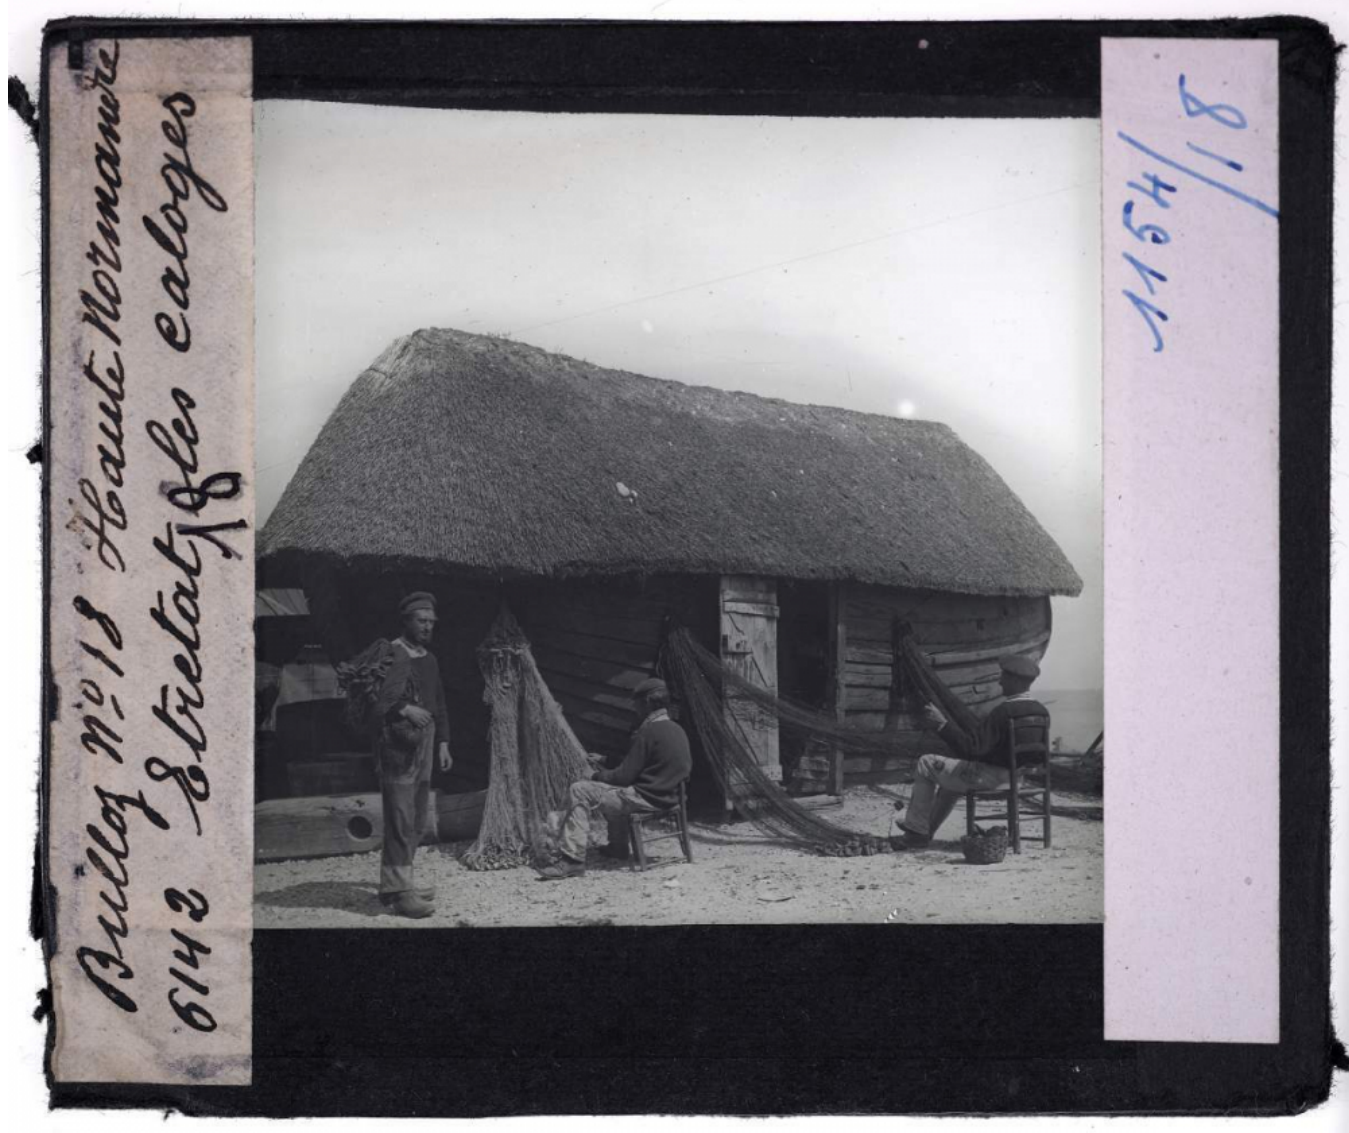 Bulloz Nº 18 Haute Normandie
6142 Etretat les caloges
18
1154/
18